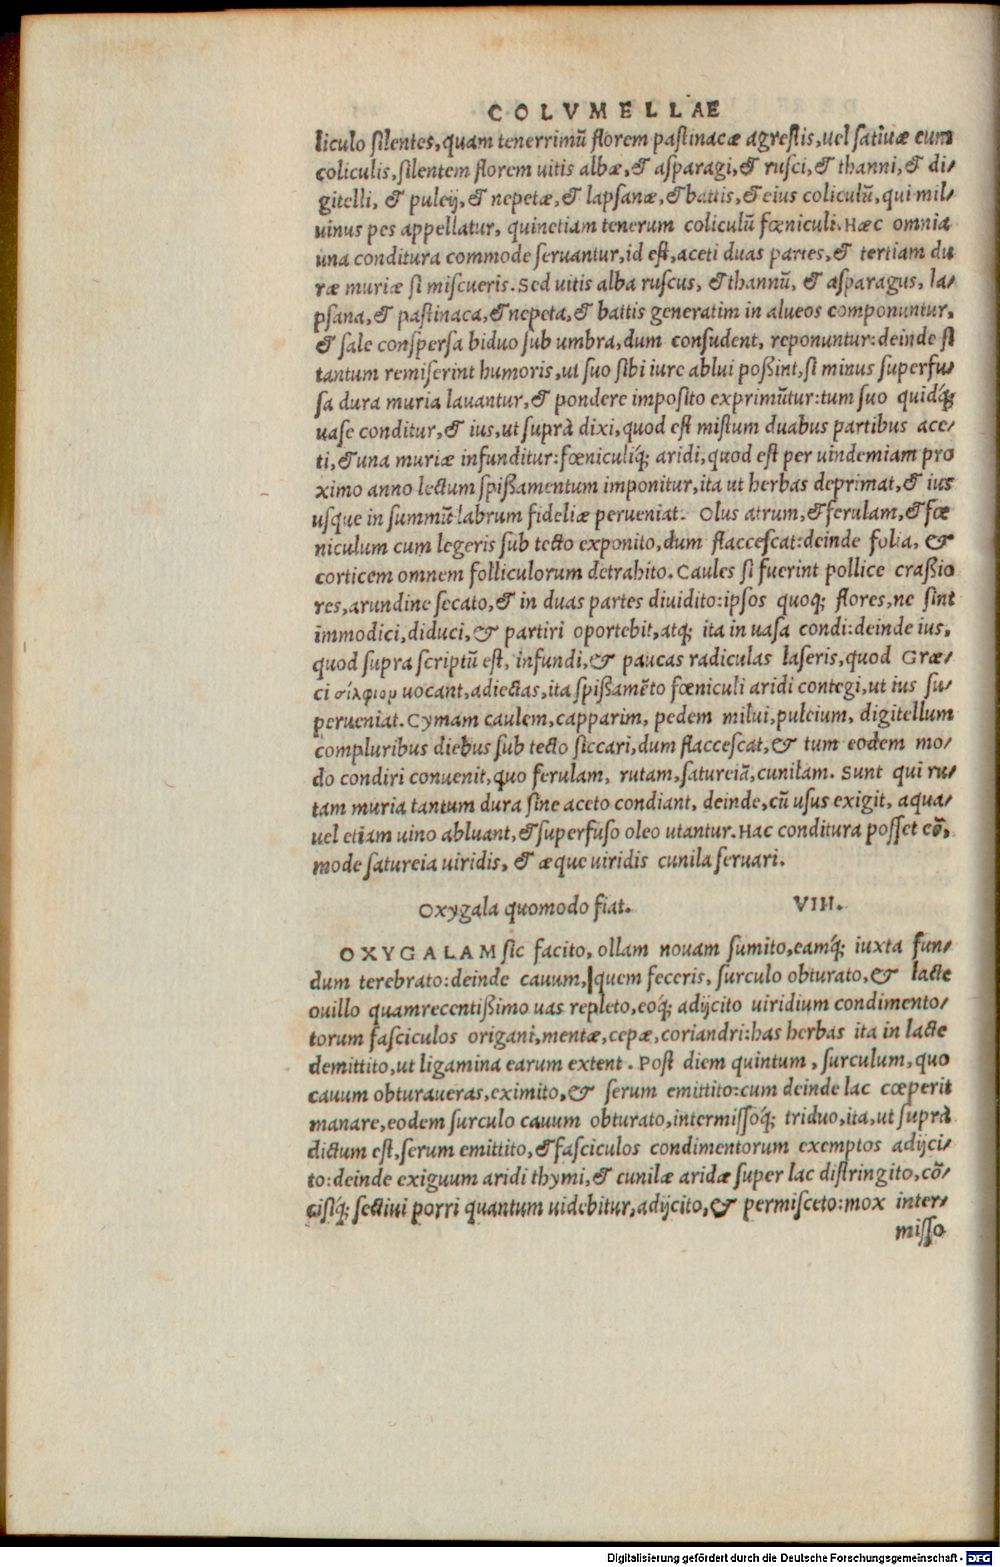 COLVMELLAE
liculo silentes, quam tenerrimū florem pastinacæ agrestis, uel satiuæ cum
coliculis, silentem florem uitis albæ, & asparagi, & rusci, & thanni, & di/
gitelli, & puleij, & nepetæ, & lapsanæ, & battis, & eius coliculū, qui mil/
uinus pes appellatur, quinetiam tenerum coliculū fœniculi. Hæc omnia
una conditura commode seruantur, id est, aceti duas partes, & tertiam du
ræ muriæ si miscueris. Sed uitis alba ruscus, & thannū, & asparagus, la/
psana, & pastinaca, & nepeta, & battis generatim in alueos componuntur,
& sale conspersa biduo sub umbra, dum consudent, reponuntur: deinde si
tantum remiserint humoris, ut suo sibi iure ablui poßint, si minus superfu/
sa dura muria lauantur, & pondere imposito exprimūtur: tum suo quidq́;
uase conditur, & ius, ut suprà dixi, quod est mistum duabus partibus ace/
ti, & una muriæ infunditur: fœniculiq́; aridi, quod est per uindemiam pro
ximo anno lectum spißamentum imponitur, ita ut herbas deprimat, & ius
usque in summū labrum fideliæ perueniat. Olus atrum, & ferulam, & fœ
niculum cum legeris sub tecto exponito, dum flaccescat: deinde folia, &
corticem omnem folliculorum detrahito. Caules si fuerint pollice craßio
res, arundine secato, & in duas partes diuidito: ipsos quoq; flores, ne sint
immodici, diduci, & partiri oportebit, atq; ita in uasa condi: deinde ius,
quod supra scriptū est, infundi, & paucas radiculas laseris, quod Græ/
ci σίλφιον uocant, adiectas, ita spißamēto fœniculi aridi contegi, ut ius su/
perueniat. Cymam caulem, capparim, pedem milui, puleium, digitellum
compluribus diebus sub tecto siccari, dum flaccescat, & tum eodem mo/
do condiri conuenit, quo ferulam, rutam, satureiā, cunilam. Sunt qui ru/
tam muria tantum dura sine aceto condiant, deinde, cū usus exigit, aqua/
uel etiam uino abluant, & superfuso oleo utantur. Hac conditura posset cō,
mode satureia uiridis, & æque uiridis cunila seruari.
Oxygala quomodo fiat. VIII.
OXYGALAM sic facito, ollam nouam sumito, eamq́; iuxta fun/
dum terebrato: deinde cauum, quem feceris, surculo obturato, & lacte
ouillo quamrecentißimo uas repleto, eoq́; adijcito uiridium condimento/
torum fasciculos origani, mentæ, cepæ, coriandri: has herbas ita in lacte
demittito, ut ligamina earum extent. Post diem quintum, surculum, quo
cauum obturaueras, eximito, & serum emittito: cum deinde lac cœperit
manare, eodem surculo cauum obturato, intermissoq́; triduo, ita, ut suprà
dictum est, serum emittito, & fasciculos condimentorum exemptos adijci/
to: deinde exiguum aridi thymi, & cunilæ aridæ super lac distringito, cō/
cisiq́; sectiui porri quantum uidebitur, adijcito, & permisceto: mox inter/
misso
Digitalisierung gefördert durch die Deutsche Forschungsgemeinschaft - DFG